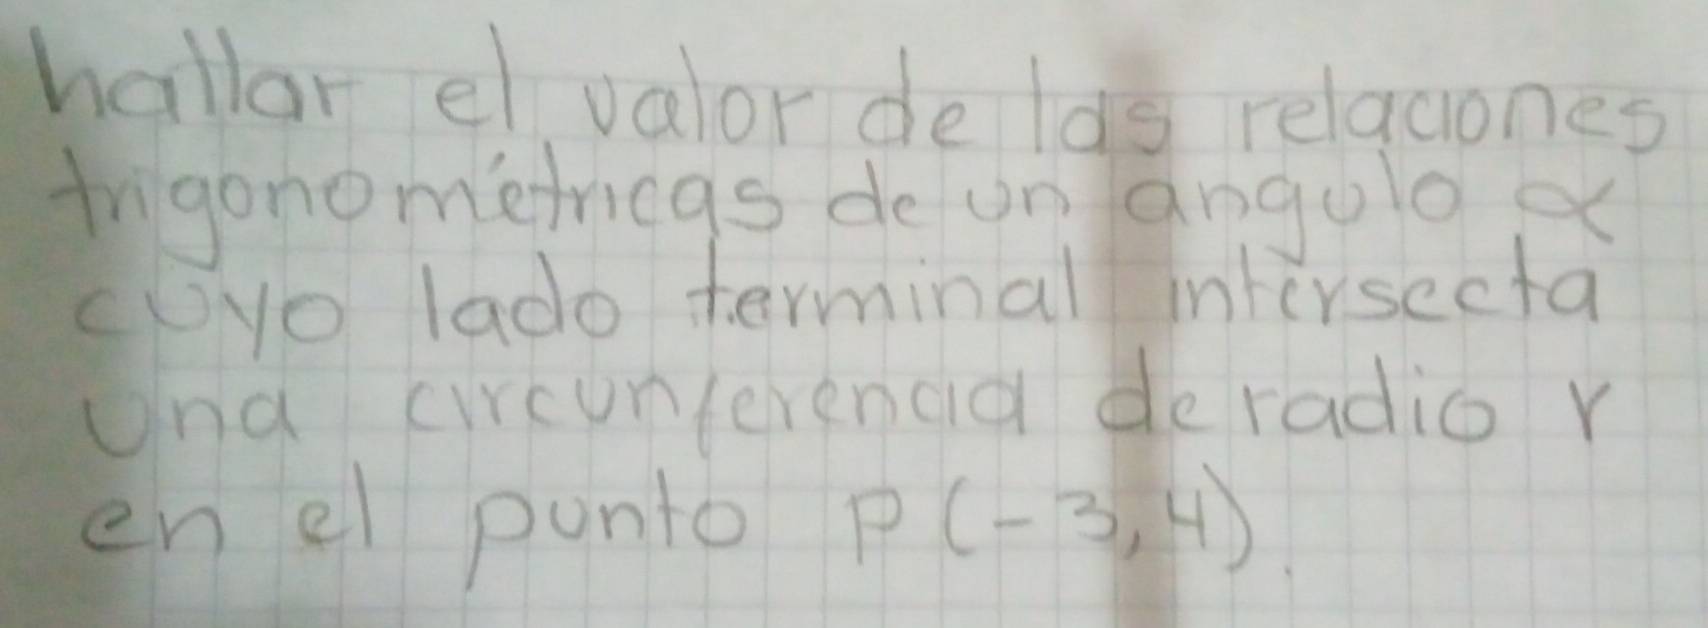 hallar el valor de las relaciones
trigonométricas de un angulo α
cuyo lado terminal intersecta
una circunferencia de radio r
en el punto P(-3,4).